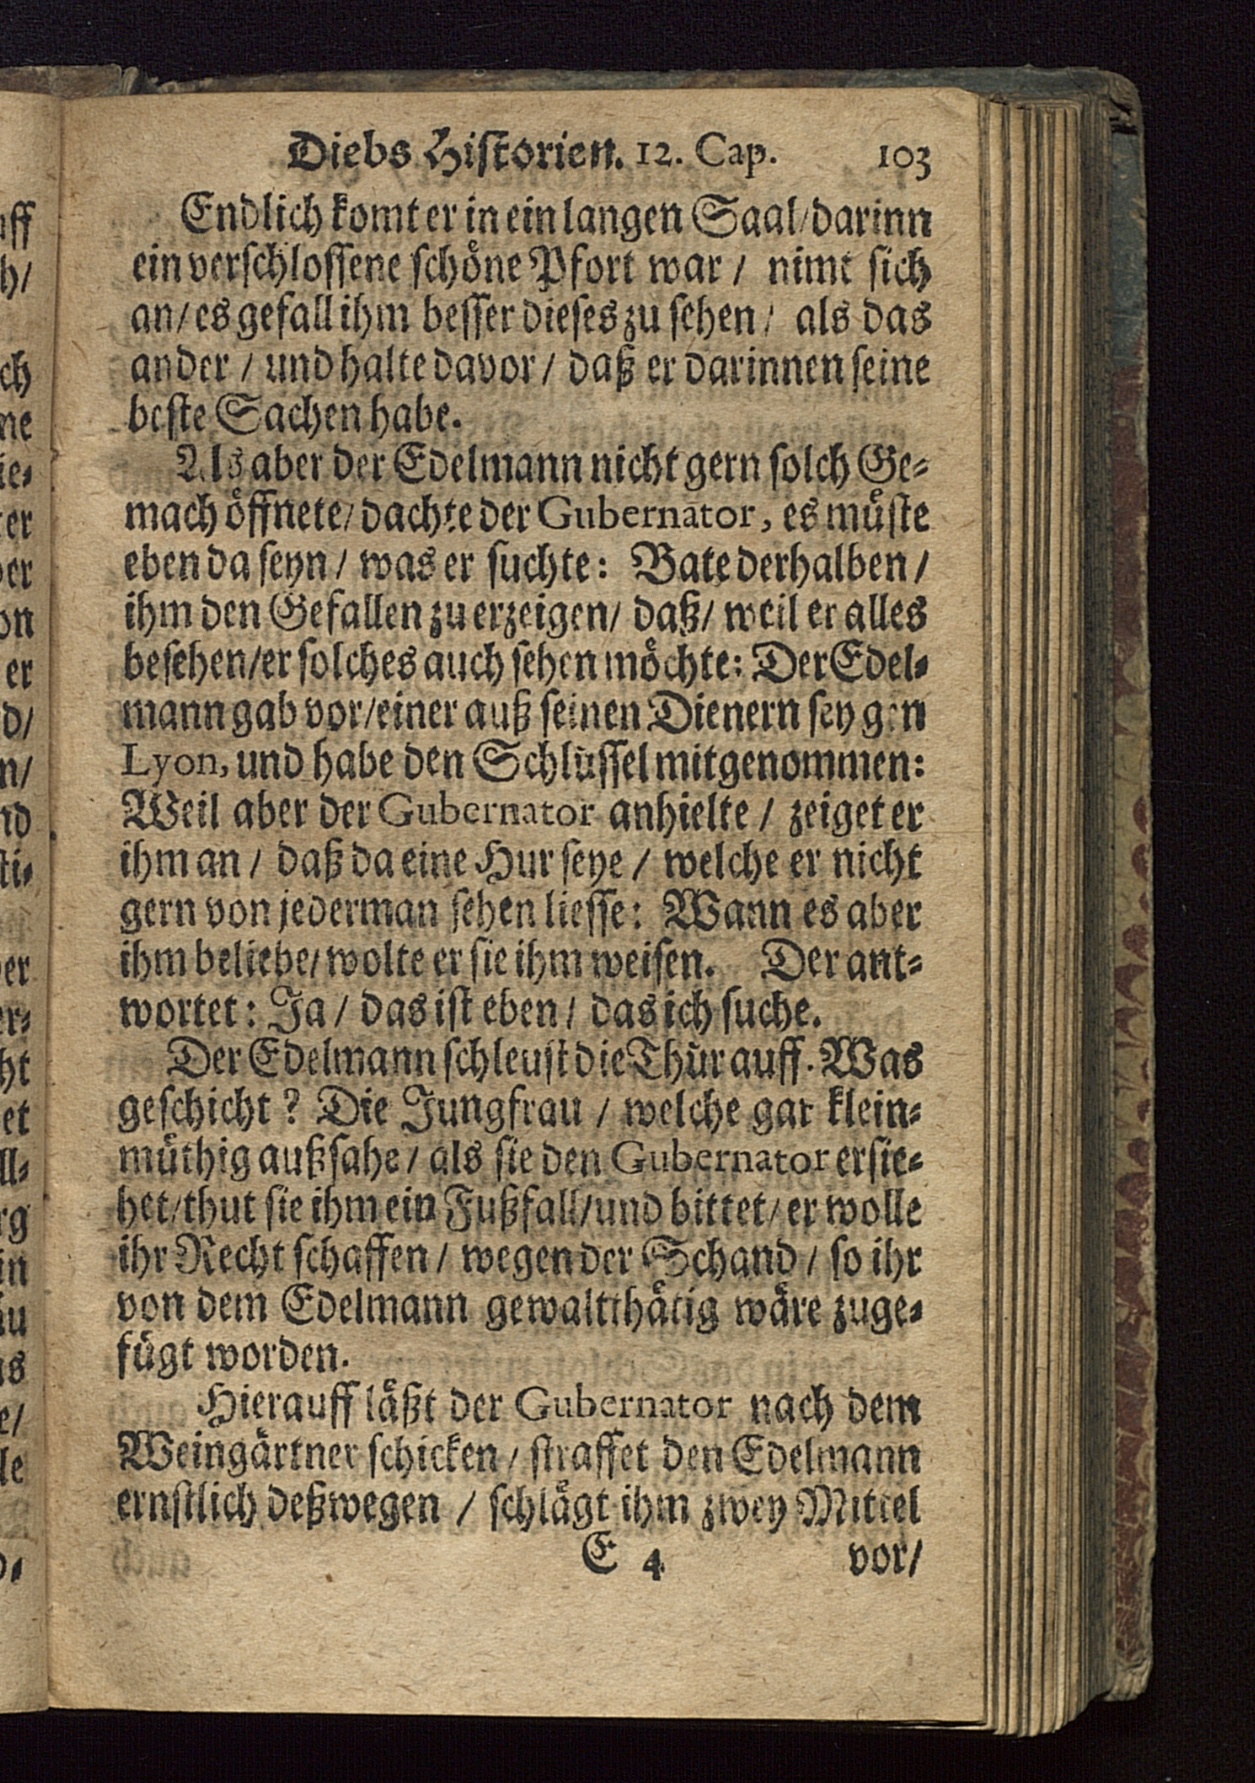 Diebs Historien. 12. Cap. 103
Endlich komt er in ein langen Saal/darinn
ein verschlossene schöne Pfort war / nimt sich
an/es gefall ihm besser dieses zu sehen / als das
ander / und halte davor / daß er darinnen seine
beste Sachen habe.
Als aber der Edelmann nicht gern solch Ge-
mach öffnete/dachte der Gubernator, es müste
eben da seyn / was er suchte: Bate derhalben /
ihm den Gefallen zu erzeigen/ daß/ weil er alles
besehen/er solches auch sehen möchte: Der Edel-
mann gab vor/einer auß seinen Dienern sey gen
Lyon, und habe den Schlüssel mitgenommen:
Weil aber der Gubernator anhielte / zeiget er
ihm an / daß da eine Hur seye / welche er nicht
gern von jederman sehen liesse: Wann es aber
ihm beliebe/wolte er sie ihm weisen. Der ant-
wortet: Ja / das ist eben / das ich suche.
Der Edelmann schleust die Thür auff. Was
geschicht? Die Jungfrau / welche gar klein-
müthig außsahe / als sie den Gubernator ersie-
het/thut sie ihm ein Fußfall/und bittet/er wolle
ihr Recht schaffen / wegen der Schand / so ihr
von dem Edelmann gewaltthätig wäre zuge-
fügt worden.
Hierauff läßt der Gubernator nach dem
Weingärtner schicken / straffet den Edelmann
ernstlich deßwegen / schlägt ihm zwey Mittel
E 4 vor/